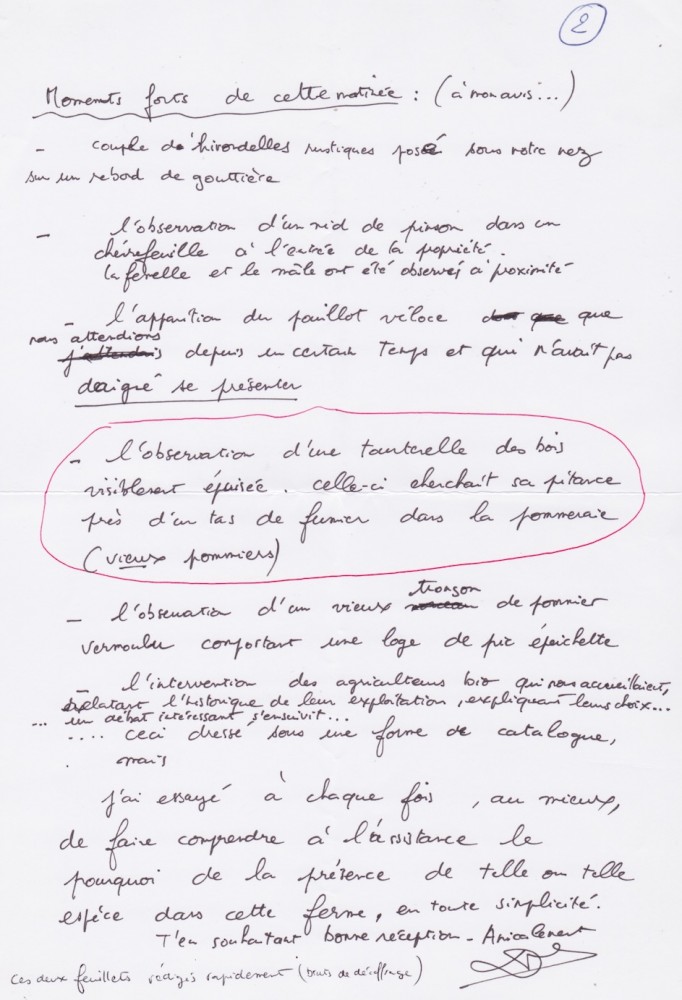 2
Moments forts de cette matinée : (à mon avis...)
- couple d'hirondelles rustiques posé sous notre nez
sur un rebord de gouttière
- l'observation d'un nid de pinson dans un
chèvrefeuille à l'entrée de la propriété.
la femelle et le mâle ont été observés à proximité
- l'apparition du pouillot véloce que
nous attendions
j'attendais depuis un certain temps et qui n'avait pas
daigné se présenter
- l'observation d'une tourterelle des bois
visiblement épuisée. celle-ci cherchait sa pitance
près d'un tas de fumier dans la pommeraie
(vieux pommiers)
tronçon
- l'observation d'un vieux morceau de pommier
vermoulu comportant une loge de pic épeichette
- l'intervention des agriculteurs bio qui nous accueillaient,
relatant l'historique de leur exploitation, expliquant leurs choix...
... un débat intéressant s'ensuivit...
.... ceci dressé sous une forme de catalogue,
mais
j'ai essayé à chaque fois, au mieux,
de faire comprendre à l'assistance le
pourquoi de la présence de telle ou telle
espèce dans cette ferme, en toute simplicité.
T'en souhaitant bonne réception - Amicalement
ces deux feuillets rédigés rapidement (